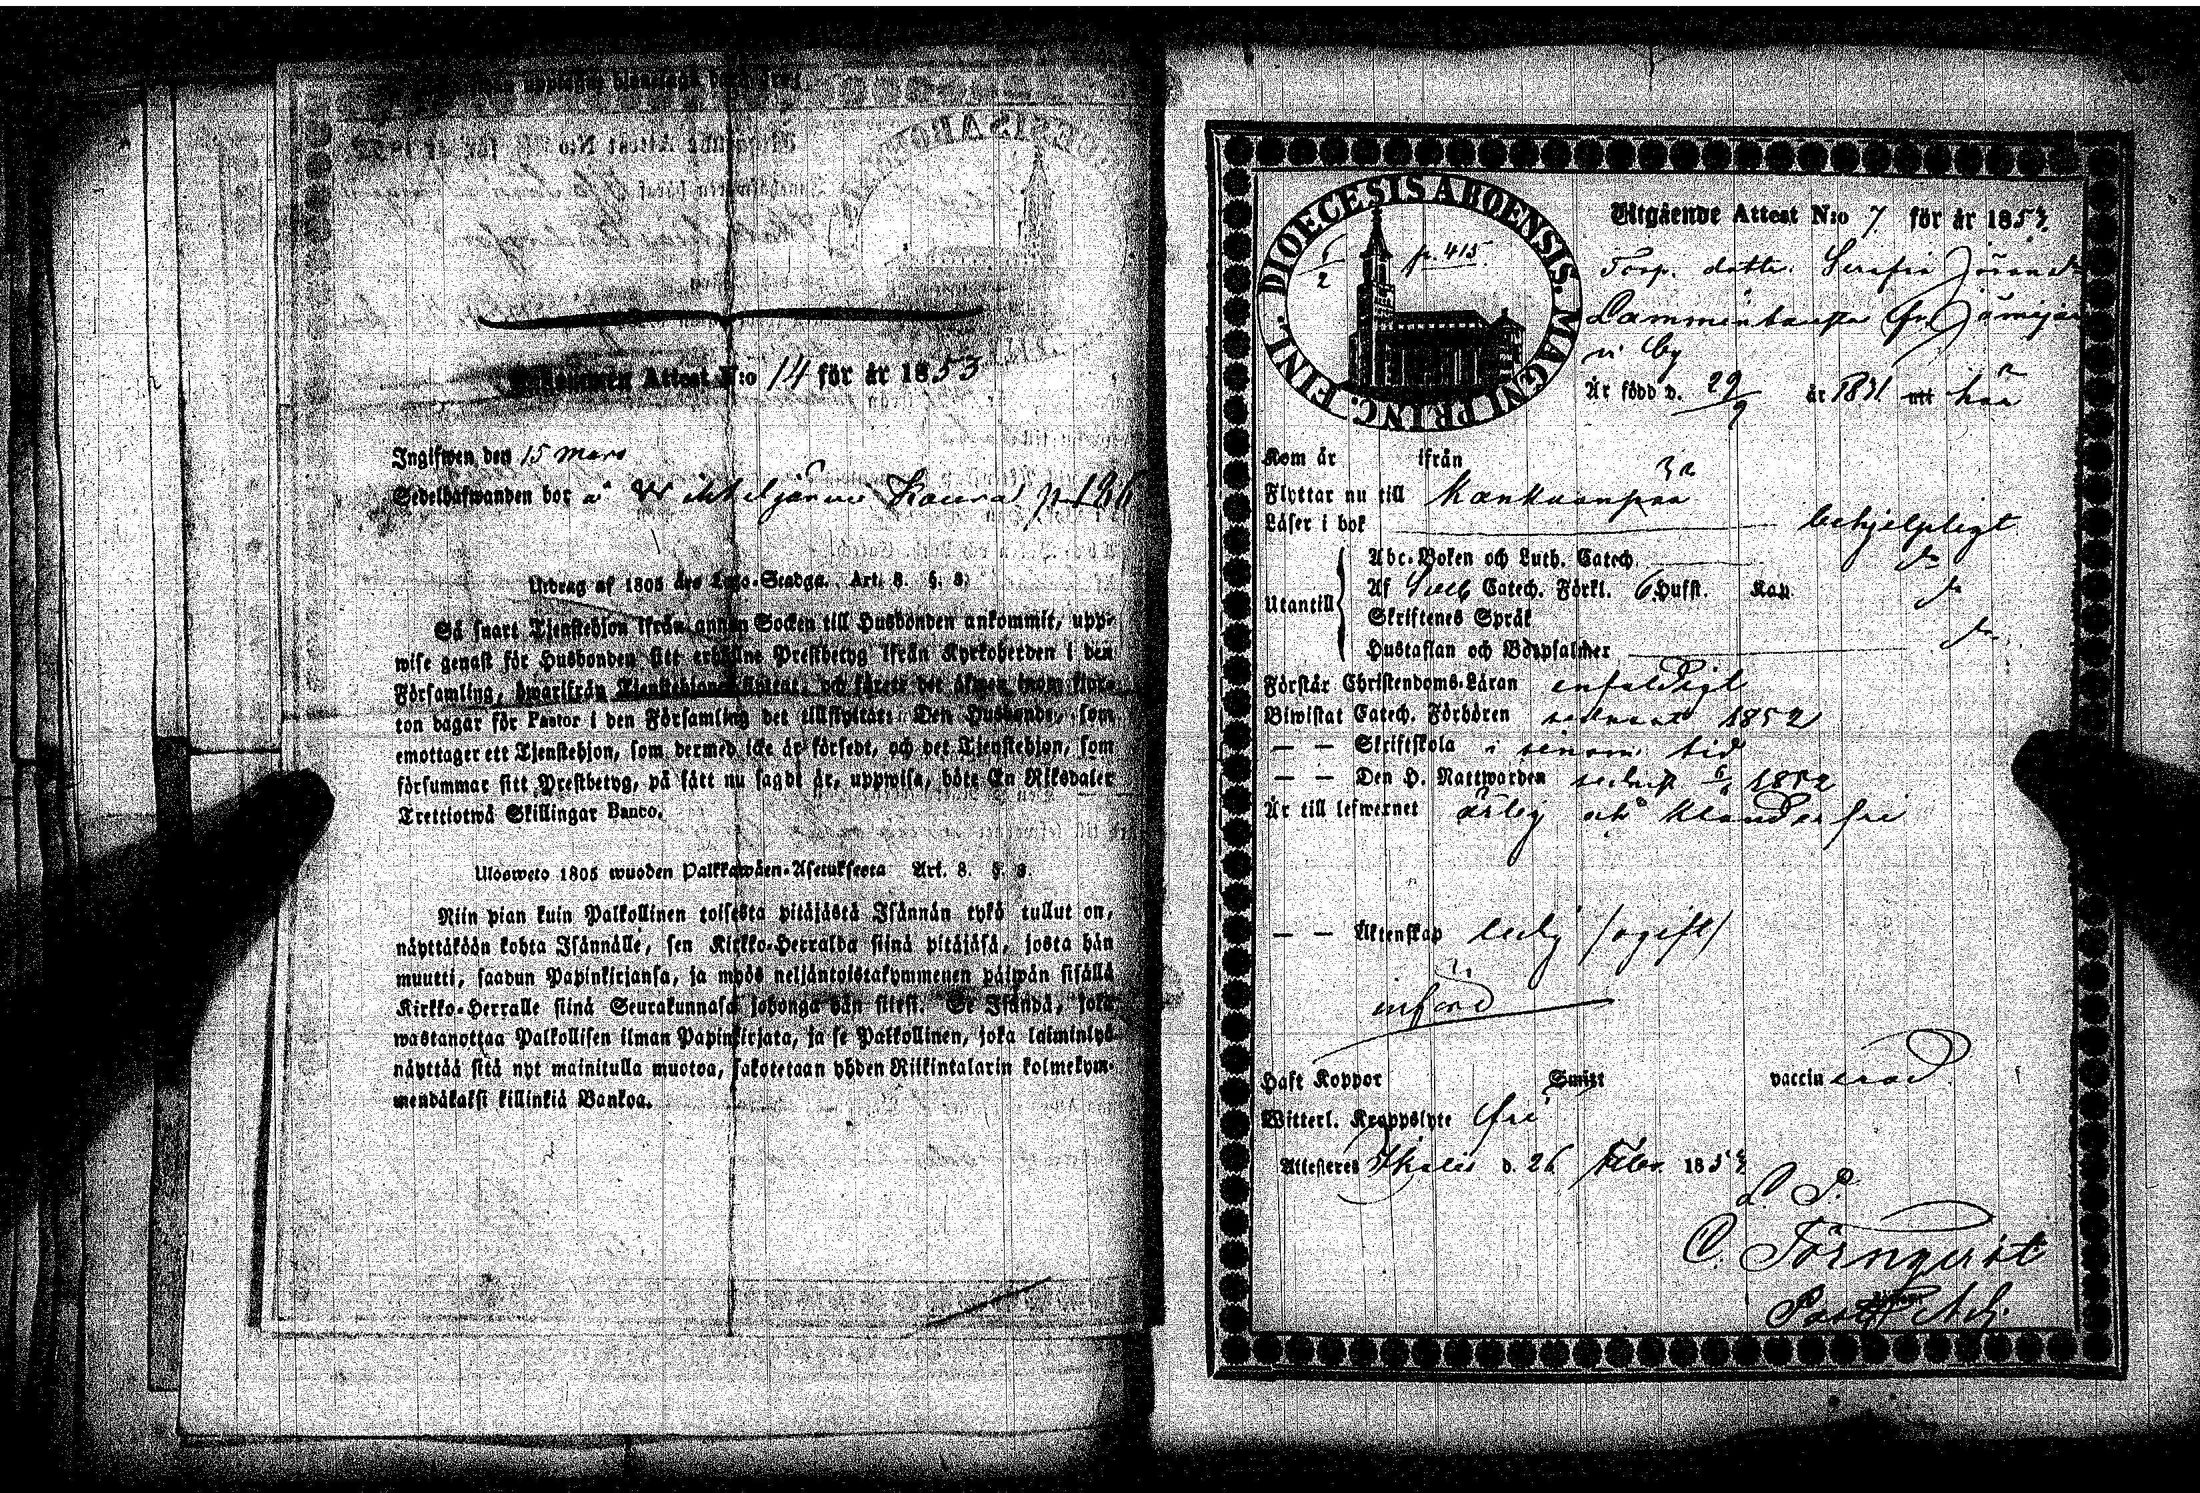 Inkommen Attest N:o 14 för år 1853
Ingifwen den 15 mars
Sedelhafwanden bor å
Utdrag af 1805 års Lego-Stadga. Art. 8. §. 8.
Så snart Tjenstehjon ifrån annan Socken till Husbonden ankommit, upp-
wise genast för Husbonden sitt erhållne Prestbetyg ifrån Kyrkoherden i den
Församling, hwarifrån Tjenstehjonet flyttat, och sårete det äfwen inom fjor-
ton dagar för Pastor i den Församling det tillflyttat. Den Husbonde, som
emottager ett Tjenstehjon, som dermed icke är försedt, och det Tjenstehjon, som
försummar sitt Prestbetyg, på sätt nu sagdt är, uppwisa, böte En Riksdaler
Trettiotwå Skillingar Banco.
Ulosweto 1805 wuoden Palkkawäen-Asetuksesta Art. 8. §. 8.
Niin pian kuin Palkollinen toisesta pitäjästä Isännän tykö tullut on,
näyttäköön kohta Isännälle, sen Kirkko-Herralda siinä pitäjäsä, josta hän
muutti, saadun Papinkirjansa, ja myös neljäntoistakymmenen päiwän sisällä
Kirkko-Herralle siinä Seurakunnasa johonga hän siirsi. Se Isändä, joka
wastanottaa Palkollisen ilman Papinkirjata, ja se Palkollinen, joka laiminlyö
näyttää sitä nyt mainitulla muotoa, sakotetaan yhden Riikintalarin kolmekym-
mendäkaksi killinkiä Bankoa.
DIOECESIS ABOENSIS. MAGNI PRINC. FINL.
p. 415.
Utgående Attest N:o 7 för år 1853.
Torp. dotter Serafia
i by
Är född d. 29/9 år 1831 utt här
Kom år ifrån
Flyttar nu till Kankaanpää
Läser i bok behjelpligt
Utantill
Abc-Boken och Luth. Catech. do
Af Sveb Catech. Förkl. 6 Hufst. Kap. do
Skriftenes Språk
Hustaflan och Botpsalmer do
Förstår Christendoms-Läran enfaldigt
Biwistat Catech. Förhören sednast 1852
— — Skriftskola i sinom tid
— — Den H. Nattwarden sednast 1852
Är till lefwernet ärlig och klanderfri
— — Äktenskap ledig /ogift/
införd
Haft Koppor Smitt vaccinerad.
Witterl. Kroppslyte fri
Attesteres Ikalis d. 26 Febr. 1853
L. S.
C. Törnqvist